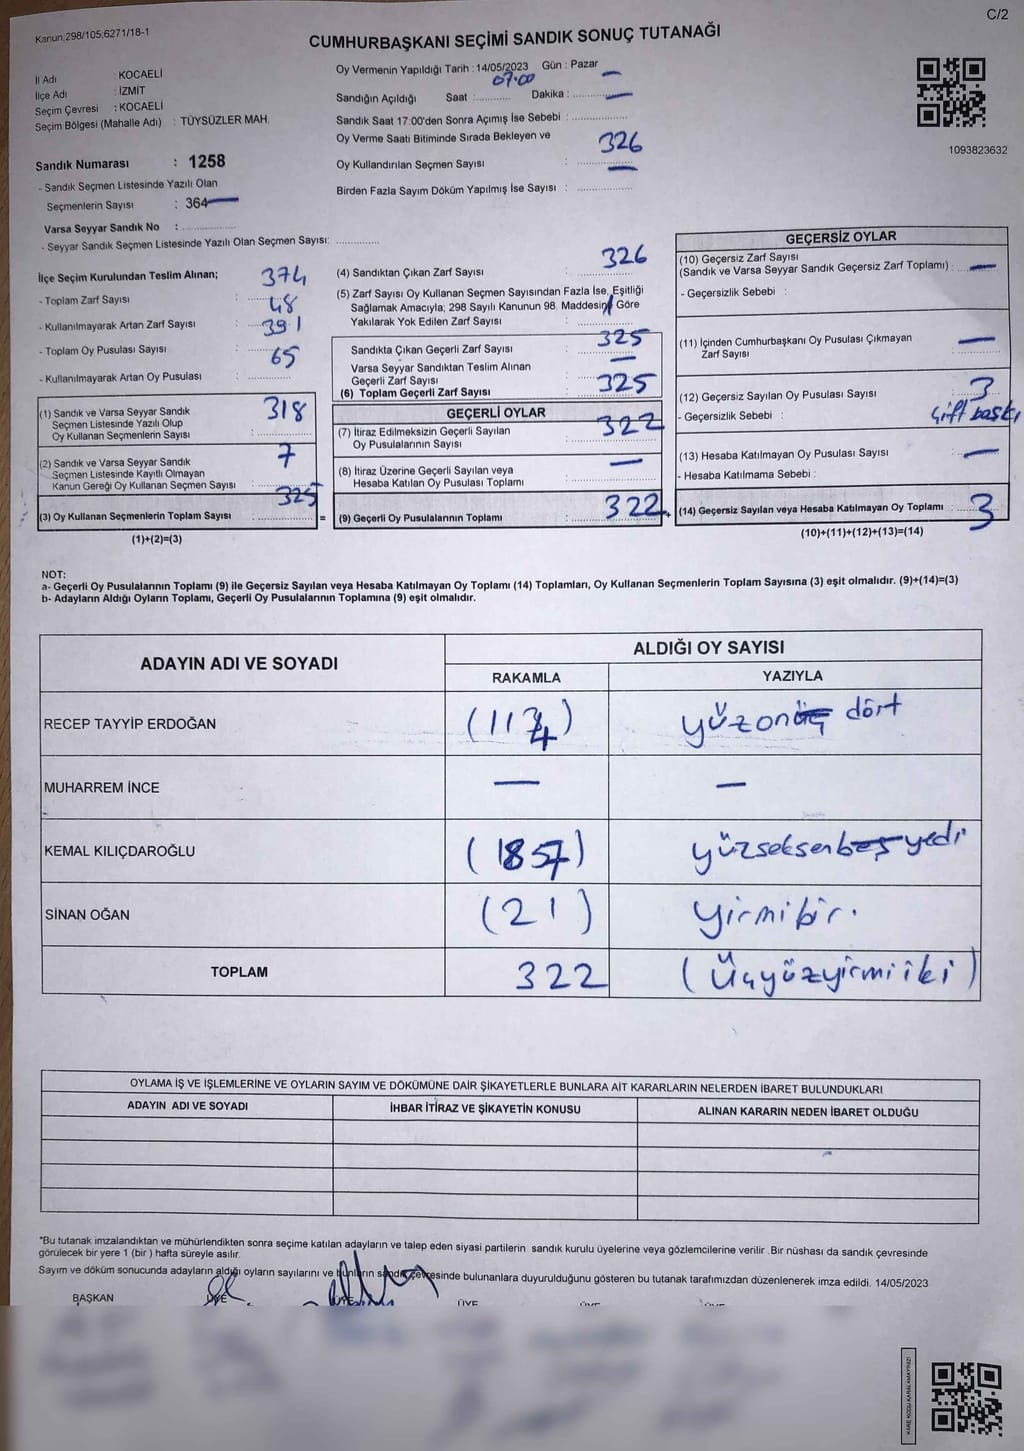 C/2
Kanun:298/105;6271/18-1
CUMHURBAŞKANI SEÇİMİ SANDIK SONUÇ TUTANAĞI
İl Adı : KOCAELİ
İlçe Adı : İZMİT
Seçim Çevresi : KOCAELİ
Seçim Bölgesi (Mahalle Adı) : TÜYSÜZLER MAH.
Sandık Numarası : 1258
- Sandık Seçmen Listesinde Yazılı Olan
Seçmenlerin Sayısı : 364
Varsa Seyyar Sandık No :
- Seyyar Sandık Seçmen Listesinde Yazılı Olan Seçmen Sayısı:
Oy Vermenin Yapıldığı Tarih : 14/05/2023 Gün : Pazar
Sandığın Açıldığı Saat : 07.00 Dakika : —
Sandık Saat 17:00'den Sonra Açımış İse Sebebi :
Oy Verme Saati Bitiminde Sırada Bekleyen ve
Oy Kullandırılan Seçmen Sayısı : 326
Birden Fazla Sayım Döküm Yapılmış İse Sayısı : —
1093823632
İlçe Seçim Kurulundan Teslim Alınan;
- Toplam Zarf Sayısı : 374
- Kullanılmayarak Artan Zarf Sayısı : 48
- Toplam Oy Pusulası Sayısı : 391
- Kullanılmayarak Artan Oy Pusulası : 65
(1) Sandık ve Varsa Seyyar Sandık
Seçmen Listesinde Yazılı Olup
Oy Kullanan Seçmenlerin Sayısı : 318
(2) Sandık ve Varsa Seyyar Sandık
Seçmen Listesinde Kayıtlı Olmayan
Kanun Gereği Oy Kullanan Seçmen Sayısı : 7
(3) Oy Kullanan Seçmenlerin Toplam Sayısı : 325 =
(1)+(2)=(3)
(4) Sandıktan Çıkan Zarf Sayısı : 326
(5) Zarf Sayısı Oy Kullanan Seçmen Sayısından Fazla İse, Eşitliği
Sağlamak Amacıyla; 298 Sayılı Kanunun 98. Maddesine Göre
Yakılarak Yok Edilen Zarf Sayısı : 1
Sandıkta Çıkan Geçerli Zarf Sayısı : 325
Varsa Seyyar Sandıktan Teslim Alınan
Geçerli Zarf Sayısı : —
(6) Toplam Geçerli Zarf Sayısı : 325
GEÇERLİ OYLAR
(7) İtiraz Edilmeksizin Geçerli Sayılan
Oy Pusulalarının Sayısı : 322
(8) İtiraz Üzerine Geçerli Sayılan veya
Hesaba Katılan Oy Pusulası Toplamı : —
(9) Geçerli Oy Pusulalarının Toplamı : 322 +
GEÇERSİZ OYLAR
(10) Geçersiz Zarf Sayısı
(Sandık ve Varsa Seyyar Sandık Geçersiz Zarf Toplamı) : —
- Geçersizlik Sebebi :
(11) İçinden Cumhurbaşkanı Oy Pusulası Çıkmayan
Zarf Sayısı : —
(12) Geçersiz Sayılan Oy Pusulası Sayısı : 3
- Geçersizlik Sebebi : Çift baskı
(13) Hesaba Katılmayan Oy Pusulası Sayısı : —
- Hesaba Katılmama Sebebi :
(14) Geçersiz Sayılan veya Hesaba Katılmayan Oy Toplamı : 3
(10)+(11)+(12)+(13)=(14)
NOT:
a- Geçerli Oy Pusulalarının Toplamı (9) ile Geçersiz Sayılan veya Hesaba Katılmayan Oy Toplamı (14) Toplamları, Oy Kullanan Seçmenlerin Toplam Sayısına (3) eşit olmalıdır. (9)+(14)=(3)
b- Adayların Aldığı Oyların Toplamı, Geçerli Oy Pusulalarının Toplamına (9) eşit olmalıdır.
ADAYIN ADI VE SOYADI ALDIĞI OY SAYISI
RAKAMLA YAZIYLA
RECEP TAYYİP ERDOĞAN (114) yüzonüç dört
MUHARREM İNCE — —
KEMAL KILIÇDAROĞLU (187) yüzseksenbeş yedi
SİNAN OĞAN (21) yirmibir.
TOPLAM 322 (Üçyüzyirmiiki)
OYLAMA İŞ VE İŞLEMLERİNE VE OYLARIN SAYIM VE DÖKÜMÜNE DAİR ŞİKAYETLERLE BUNLARA AİT KARARLARIN NELERDEN İBARET BULUNDUKLARI
ADAYIN ADI VE SOYADI İHBAR İTİRAZ VE ŞİKAYETİN KONUSU ALINAN KARARIN NEDEN İBARET OLDUĞU
"Bu tutanak imzalandıktan ve mühürlendikten sonra seçime katılan adayların ve talep eden siyasi partilerin sandık kurulu üyelerine veya gözlemcilerine verilir .Bir nüshası da sandık çevresinde
görülecek bir yere 1 (bir ) hafta süreyle asılır.
Sayım ve döküm sonucunda adayların aldığı oyların sayılarını ve bunların sandık çevresinde bulunanlara duyurulduğunu gösteren bu tutanak tarafımızdan düzenlenerek imza edildi. 14/05/2023
BAŞKAN ÜYE ÜYE ÜYE ÜYE ÜYE
KARE KODU KARALAMAYINIZ!